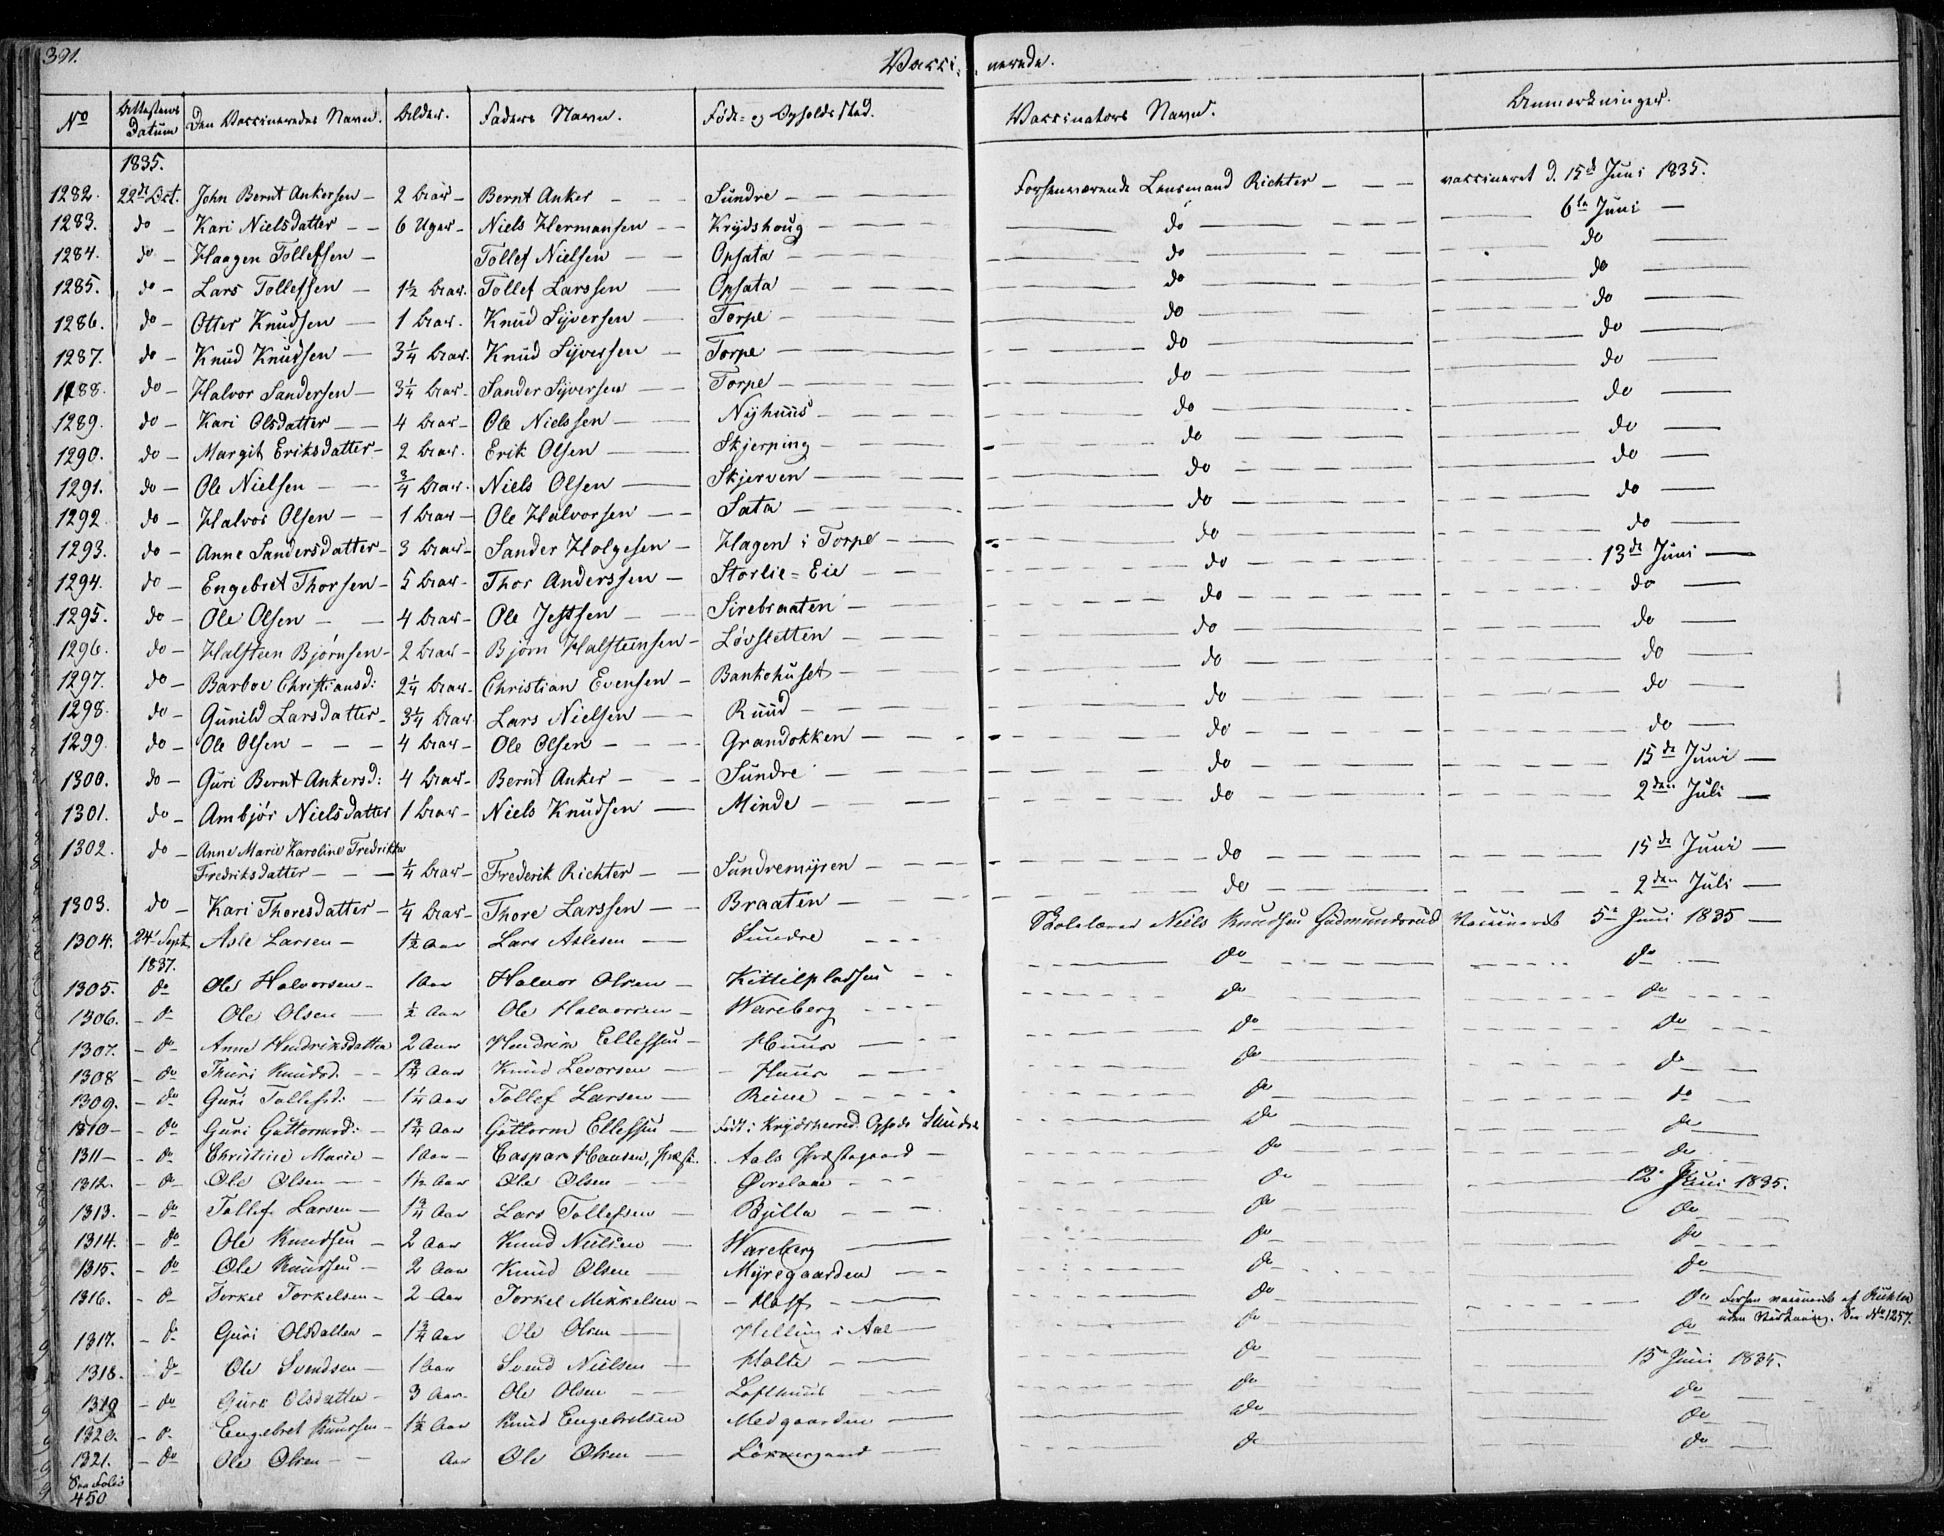 391.
Vacci- nerede.
No Attestens Datum Den Vaccineredes Navn. Alder. Faders Navn. Føde- og Opholds Sted. Vaccinators Navn. Anmærkninger.
1835.
1282. 22de Oct. John Bernt Ankersen - 2 Aar - Bernt Anker - Sundre - Forhenværende Lensmand Richter - vaccineret d. 15de Juni 1835.
1283. do - Kari Nielsdatter - 6 Uger - Niels Hermansen - Krydshoug - do 6te Juni -
1284. do - Haagen Tollefsen - Tollef Nielsen - Opsata - do do
1285. do - Lars Tollefsen - 1½ Aar. Tollef Larssen - Opsata - do do
1286. do - Otter Knudsen - 1 Aar. Knud Syversen - Torpe - do do
1287. do - Knud Knudsen - 3¼ Aar. Knud Syversen - Torpe - do do
1288. do - Halvor Sandersen - 3¼ Aar - Sander Syversen - Torpe - do do
1289. do - Kari Olsdatter - 4 Aar - Ole Nielssen - Nyhuus - do do
1290. do - Margit Eriksdatter - 2 Aar. Erik Olsen - Skjerping - do do
1291. do - Ole Nielsen - ¾ Aar. Niels Olsen - Skjerven - do do
1292. do - Halvor Olsen - 1 Aar - Ole Halvorsen - Sata - do do
1293. do - Anne Sandersdatter - 3 Aar - Sander Holgesen - Hagen i Torpe - do do
1294. do - Engebret Thorsen - 5 Aar - Thor Anderssen - Storlie-Eie - do 13de Juni -
1295. do - Ole Olsen - 4 Aar - Ole Jessen - Sirebraaten - do do
1296. do - Halsteen Bjørnsen - 2 Aar - Bjørn Halsteensen - Løvsletten - do do
1297. do - Barboe Christiansd: 2¼ Aar - Christian Evensen - Bankohuset - do do
1298. do - Gunild Larsdatter - 3¼ Aar Lars Nielsen - Ruud - do do
1299. do - Ole Olsen - 4 Aar - Ole Olsen - Grandokken - do do
1300. do - Guri Bernt Ankersd: 4 Aar - Bernt Anker - Sundre - do 15de Juni -
1301. do - Ambjør Nielsdatter 1 Aar - Niels Knudsen - Minde - do 2den Juli -
1302. do - Anne Marie Karoline Fredrikke
Fredriksdatter - ¼ Aar - Frederik Richter - Sundremyren - do 15de Juni -
1303. do - Kari Thoresdatter - ¼ Aar - Thore Larssen - Braaten - do 2den Juli -
1304. 24 Sept. Asle Larsen - 1½ Aar Lars Aslesen - Sundre - Skolelærer Niels Knudsen Gudmundsrud Vaccineret 5te Juni 1835 -
1837.
1305. do Ole Halvorsen - 1 Aar Halvor Olsen - Kittilpladsen - do do
1306. - do Ole Olsen - ½ Aar Ole Halvorsen - Wareberg - do do
1307. - do Anne Hendriksdatter 2 Aar Hendrik Ellefsen - Huus - do do
1308 - do Thuri Knudsd. - 1¾ Aar Knud Levorsen - Huus - do do
1309. - do Guri Tollefsd: - 1¼ Aar Tollef Larsen - do do
1310 - do Guri Guttormsd: - 1¾ Aar Guttorm Ellefsen - Født i Krydsherred Opholds Sundre do do
1311 - do Christine Marie - 1 Aar - Caspar Hansen, Præst. Aals Præstegaard - do do
1312. - do Ole Olsen - 1½ Aar Ole Olsen - do 12te Juni 1835.
1313. - do Tollef Larsen - 1¾ Aar Lars Tollefsen - do do
1314. - do Ole Knudsen - 2 Aar Knud Nielsen - Wareberg - do do
1315. - do Ole Knudsen - 2 Aar Knud Olsen - Myregaarden - do do
1316. - do Torkel Torkelsen - 2 Aar Torkel Mikkelsen - do do Forhen vaccineret af Richter
uden Virkning. See No 1257.
1317. - do Guri Olsdatter - 1¾ Aar Ole Olsen - Helling i Aal - do do
1318. - do Ole Svendsen - 1 Aar Svend Nielsen - Holte - do 15de Juni 1835.
1319 - do Guri Olsdatter - 3 Aar. Ole Olsen - Lofthuus - do do
1320. - do Engebret Knudsen - 1½ Aar Knud Engebretsen Medgaarden - do do
1321. - do Ole Olsen - Aar Ole Olsen - do do
See Folio
450